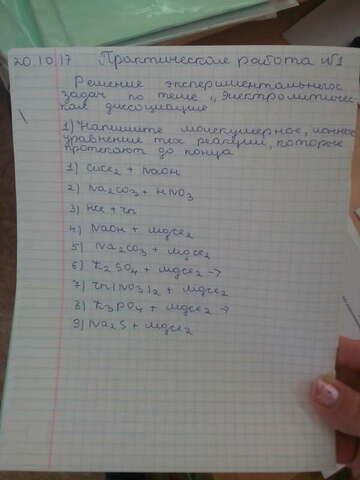 20.10.17 Практическая работа №1
Решение экспериментальных
задач по теме „Электролитичес-
кая диссоциация
1) Напишите молекулярное, ионное
уравнение тех реакции, которое
протекают до конца
1) CuCl2 + NaOH
2) Na2CO3 + HNO3
3) HCl + Zn
4) NaOH + MgCl2
5) Na2CO3 + MgCl2
6) K2SO4 + MgCl2 →
7) Zn(NO3)2 + MgCl2
8) K3PO4 + MgCl2 →
9) Na2S + MgCl2